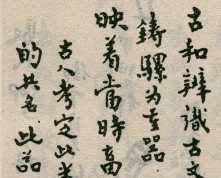 古和辨識古文
鑄驟为重器
映着當時高
古人考定此类
的共名此器